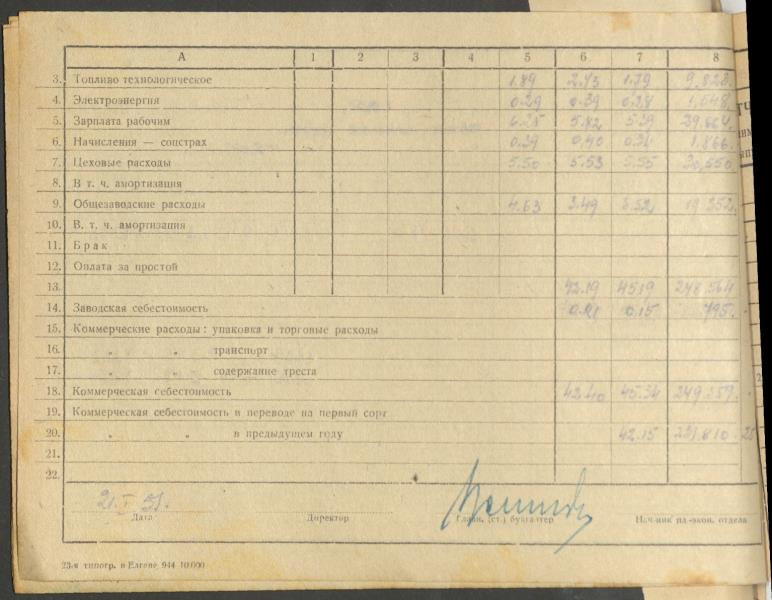 А 1 2 3 4 5 6 7 8
3. Топливо технологическое 1.89 2.43 1.79 9,828.
4. Электроэнергия 0.29 0.39 0.28 1,548.
5. Зарплата рабочим 6.25 5.42 5.39 29.664
6. Начисления — соцстрах 0.39 0.40 0.34 1.866.
7. Цеховые расходы 5.50 5.53 5.55 30,550
8. В т. ч. амортизация
9. Общезаводские расходы 4.63 3.49 3.52 19 352.
10. В. т. ч. амортизация
11. Брак
12. Оплата за простой
13. 42.19 45.19 248 564
14. Заводская себестоимость 0.21 0.15 795.
15. Коммерческие расходы: упаковка и торговые расходы
16. „ „ транспорт
17. „ „ содержание треста
18. Коммерческая себестоимость 42.40 45.34 249.359.
19. Коммерческая себестоимость в переводе на первый сорт
20. „ „ в предыдущем году 42.15 231.810.
21.
22.
21. I 51.
Дата Директор Главн. (ст.) бухгалтер Нач-ник пл-экон. отдела
23-я типогр. в Елгаве 944 10.000